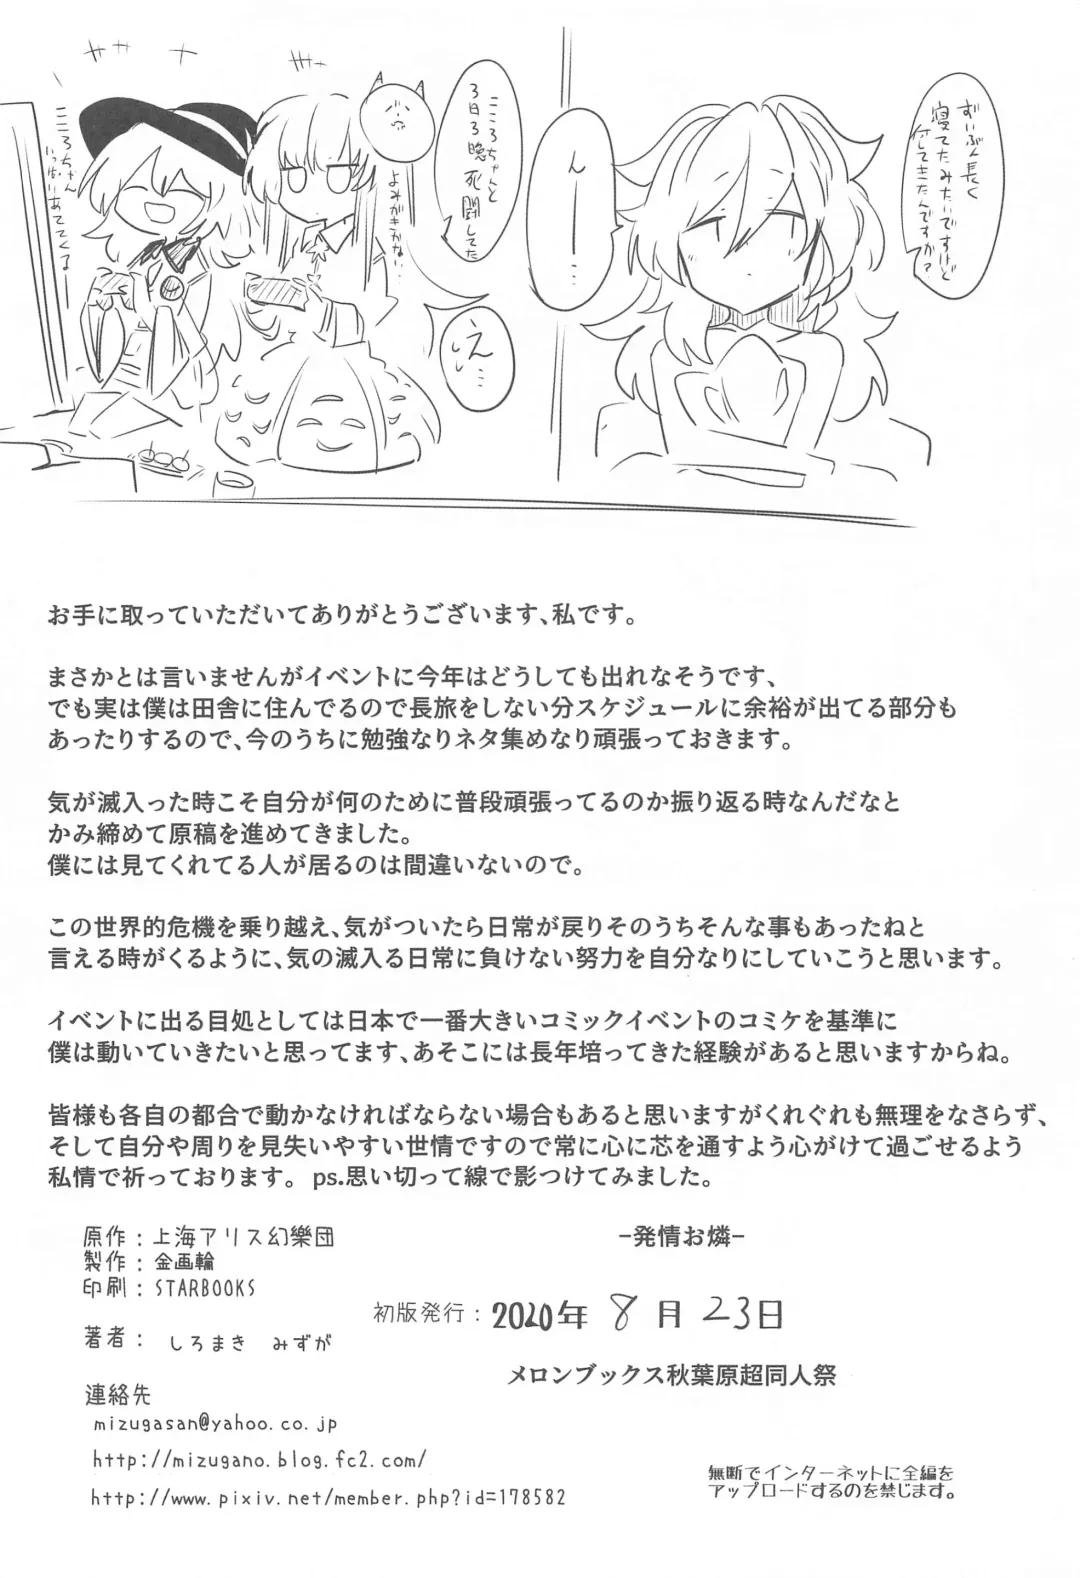 ずいぶん長く
寝てたみたいですけど
何してきたんですか?
んー…
こころちゃんと
3日3晩死闘してた
え…
よみがきかない…
こころちゃん
いっぱいあててくるー
お手に取っていただいてありがとうございます、私です。
まさかとは言いませんがイベントに今年はどうしても出れなそうです、
でも実は僕は田舎に住んでるので長旅をしない分スケジュールに余裕が出てる部分も
あったりするので、今のうちに勉強なりネタ集めなり頑張っておきます。
気が滅入った時こそ自分が何のために普段頑張ってるのか振り返る時なんだなと
かみ締めて原稿を進めてきました。
僕には見てくれてる人が居るのは間違いないので。
この世界的危機を乗り越え、気がついたら日常が戻りそのうちそんな事もあったねと
言える時がくるように、気の滅入る日常に負けない努力を自分なりにしていこうと思います。
イベントに出る目処としては日本で一番大きいコミックイベントのコミケを基準に
僕は動いていきたいと思ってます、あそこには長年培ってきた経験があると思いますからね。
皆様も各自の都合で動かなければならない場合もあると思いますがくれぐれも無理をなさらず、
そして自分や周りを見失いやすい世情ですので常に心に芯を通すよう心がけて過ごせるよう
私情で祈っております。 ps.思い切って線で影つけてみました。
原作：上海アリス幻樂団
製作：金画輪
印刷：STARBOOKS
著者： しろまき みずが
連絡先
mizugasan@yahoo.co.jp
http://mizugano.blog.fc2.com/
http://www.pixiv.net/member.php?id=178582
-発情お燐-
初版発行：2020年 8月 23日
メロンブックス秋葉原超同人祭
無断でインターネットに全編を
アップロードするのを禁じます。